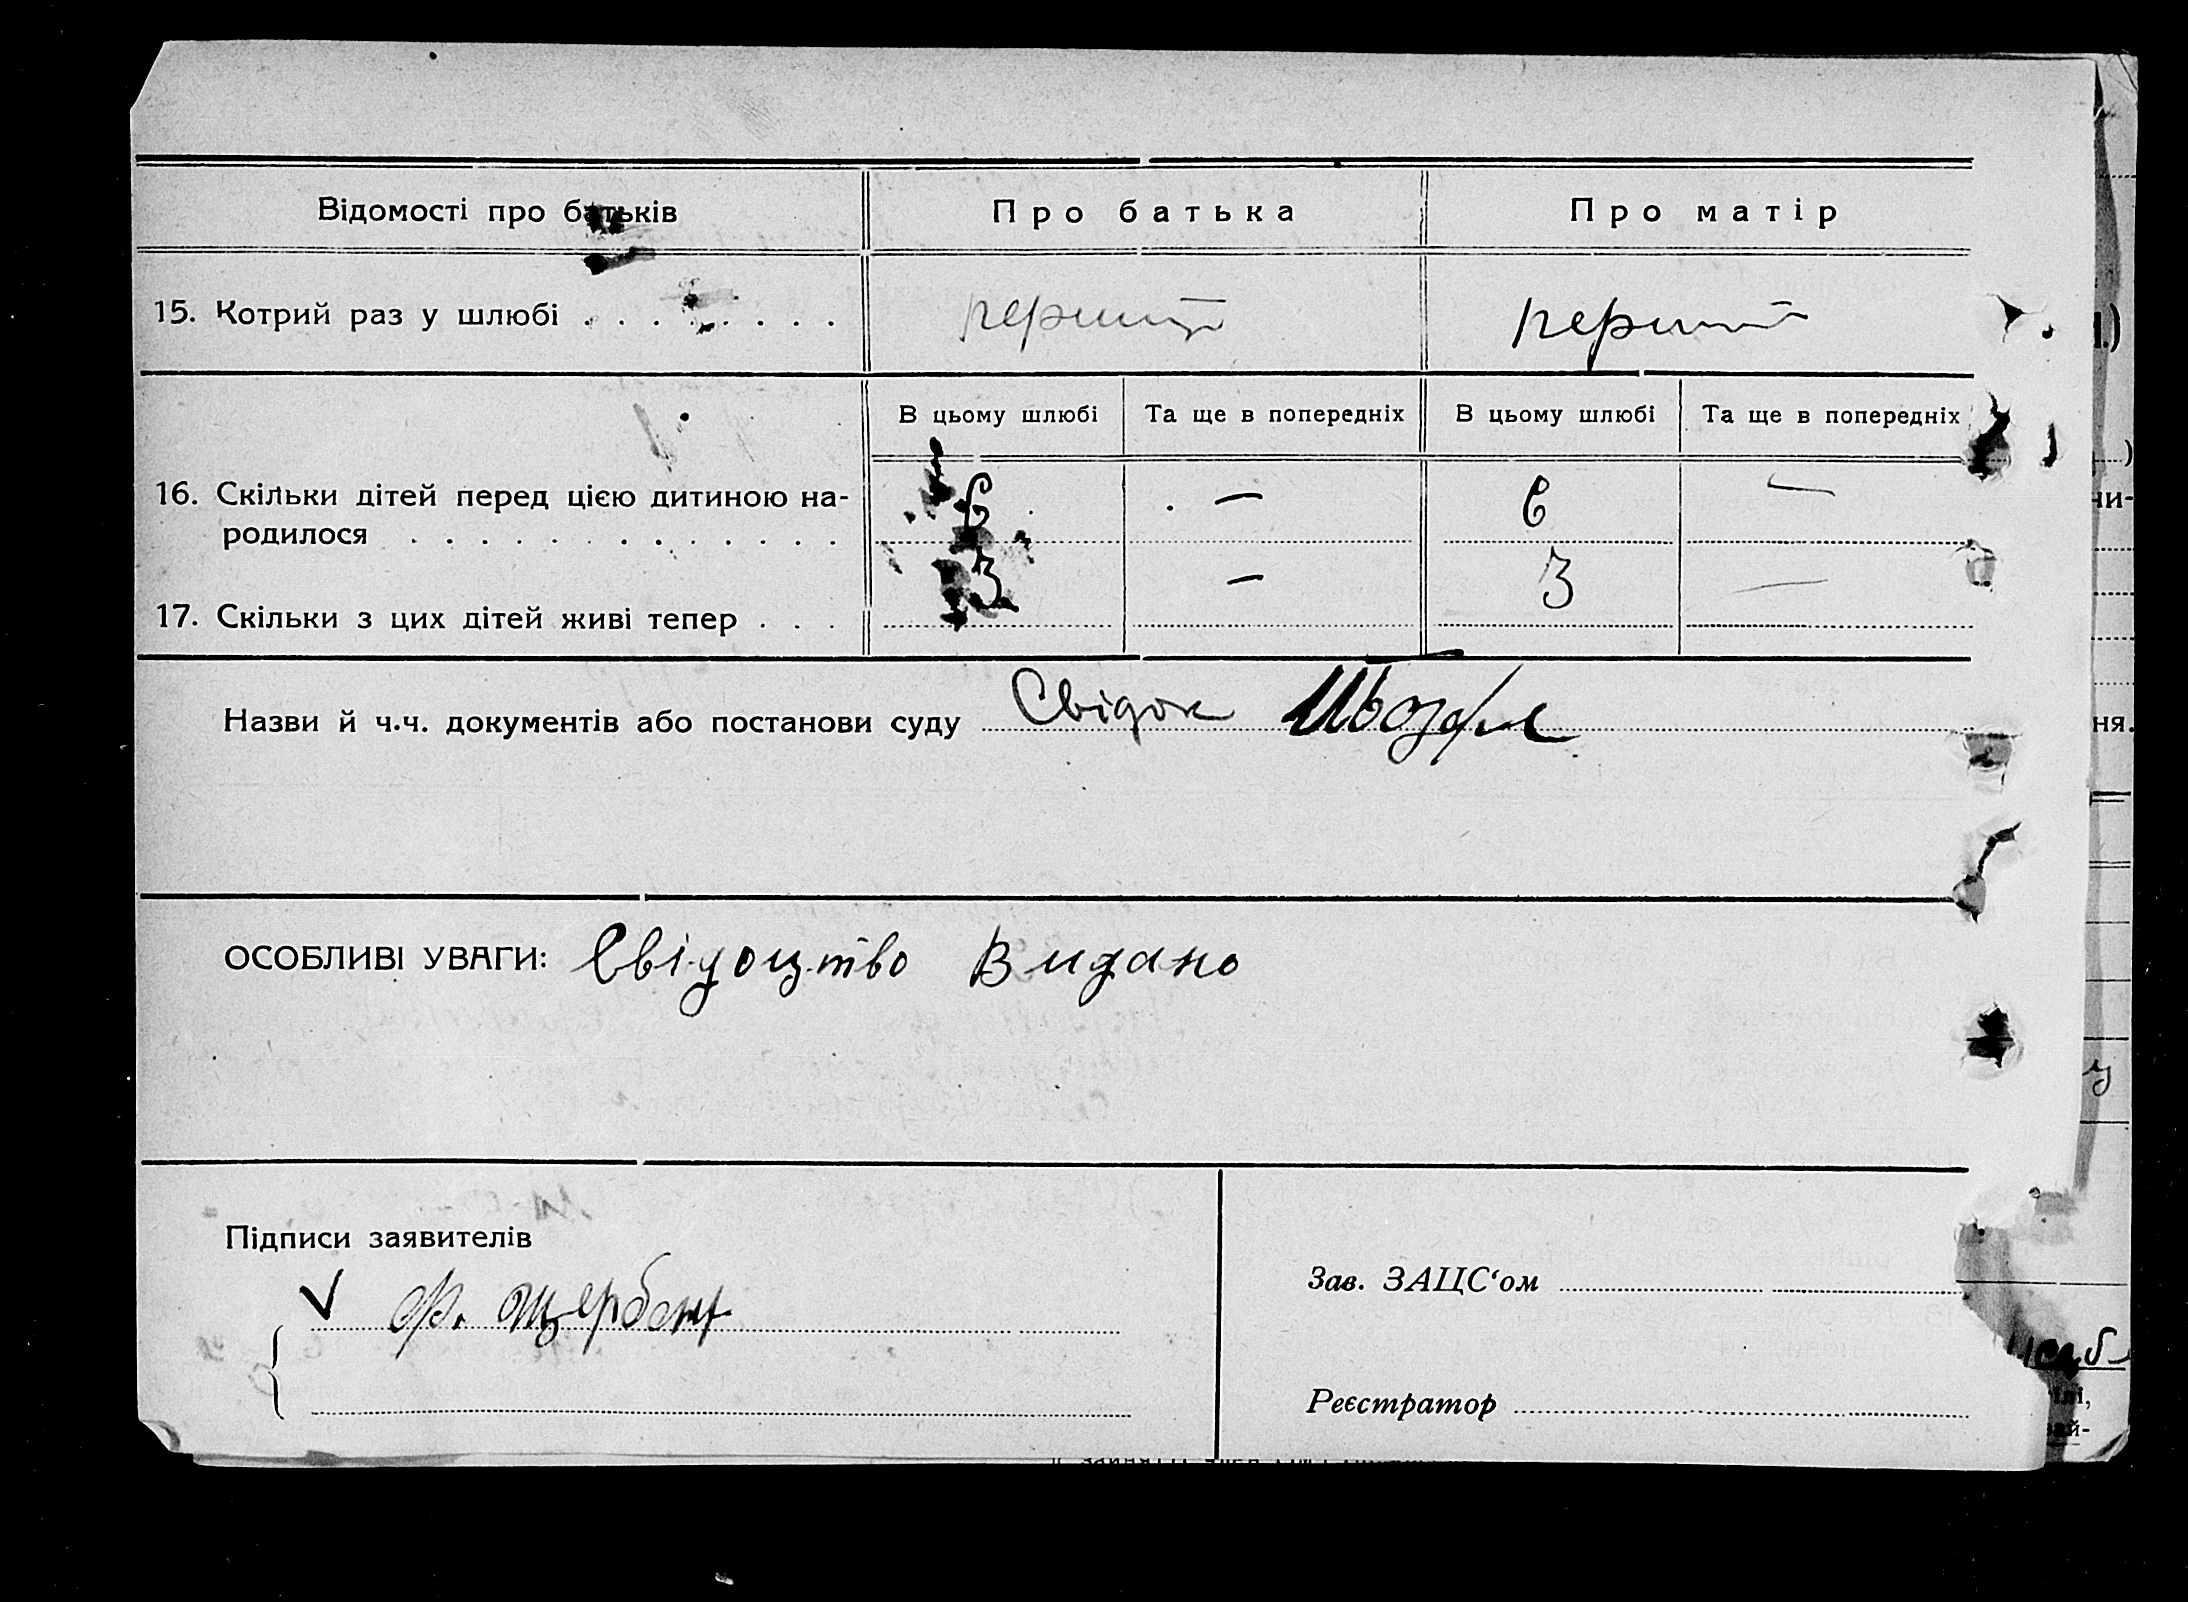 Відомості про батьків
Про батька
Про матір
15. Котрий раз у шлюбі . . . . . . . .
перший
перший
В цьому шлюбі
Та ще в попередніх
В цьому шлюбі
Та ще в попередніх
16. Скільки дітей перед цією дитиною на-
родилося . . . . . . . . . . . . .
6
—
6
—
17. Скільки з цих дітей живі тепер . . .
3
—
3
—
Назви й ч.ч. документів або постанови суду Свідок
ОСОБЛИВІ УВАГИ: Свідоцтво Видано
Підписи заявителів
Ф.
Зав. ЗАЦС‘ом
Реєстратор